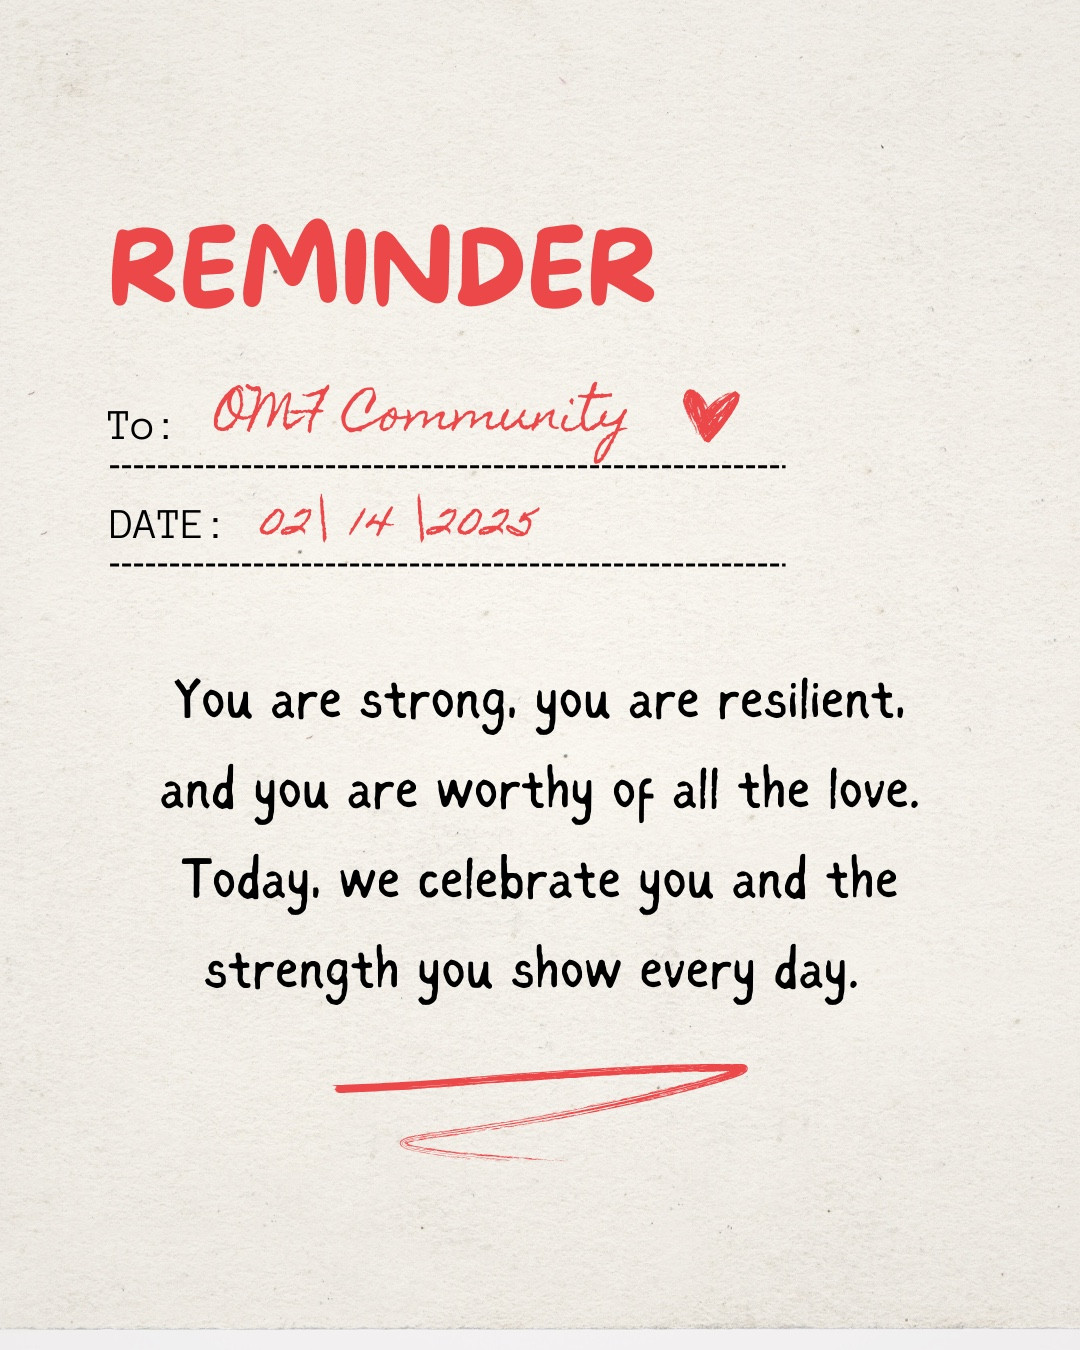 REMINDER
To: OMF Community
DATE: 02| 14 |2025
You are strong, you are resilient,
and you are worthy of all the love.
Today, we celebrate you and the
strength you show every day.